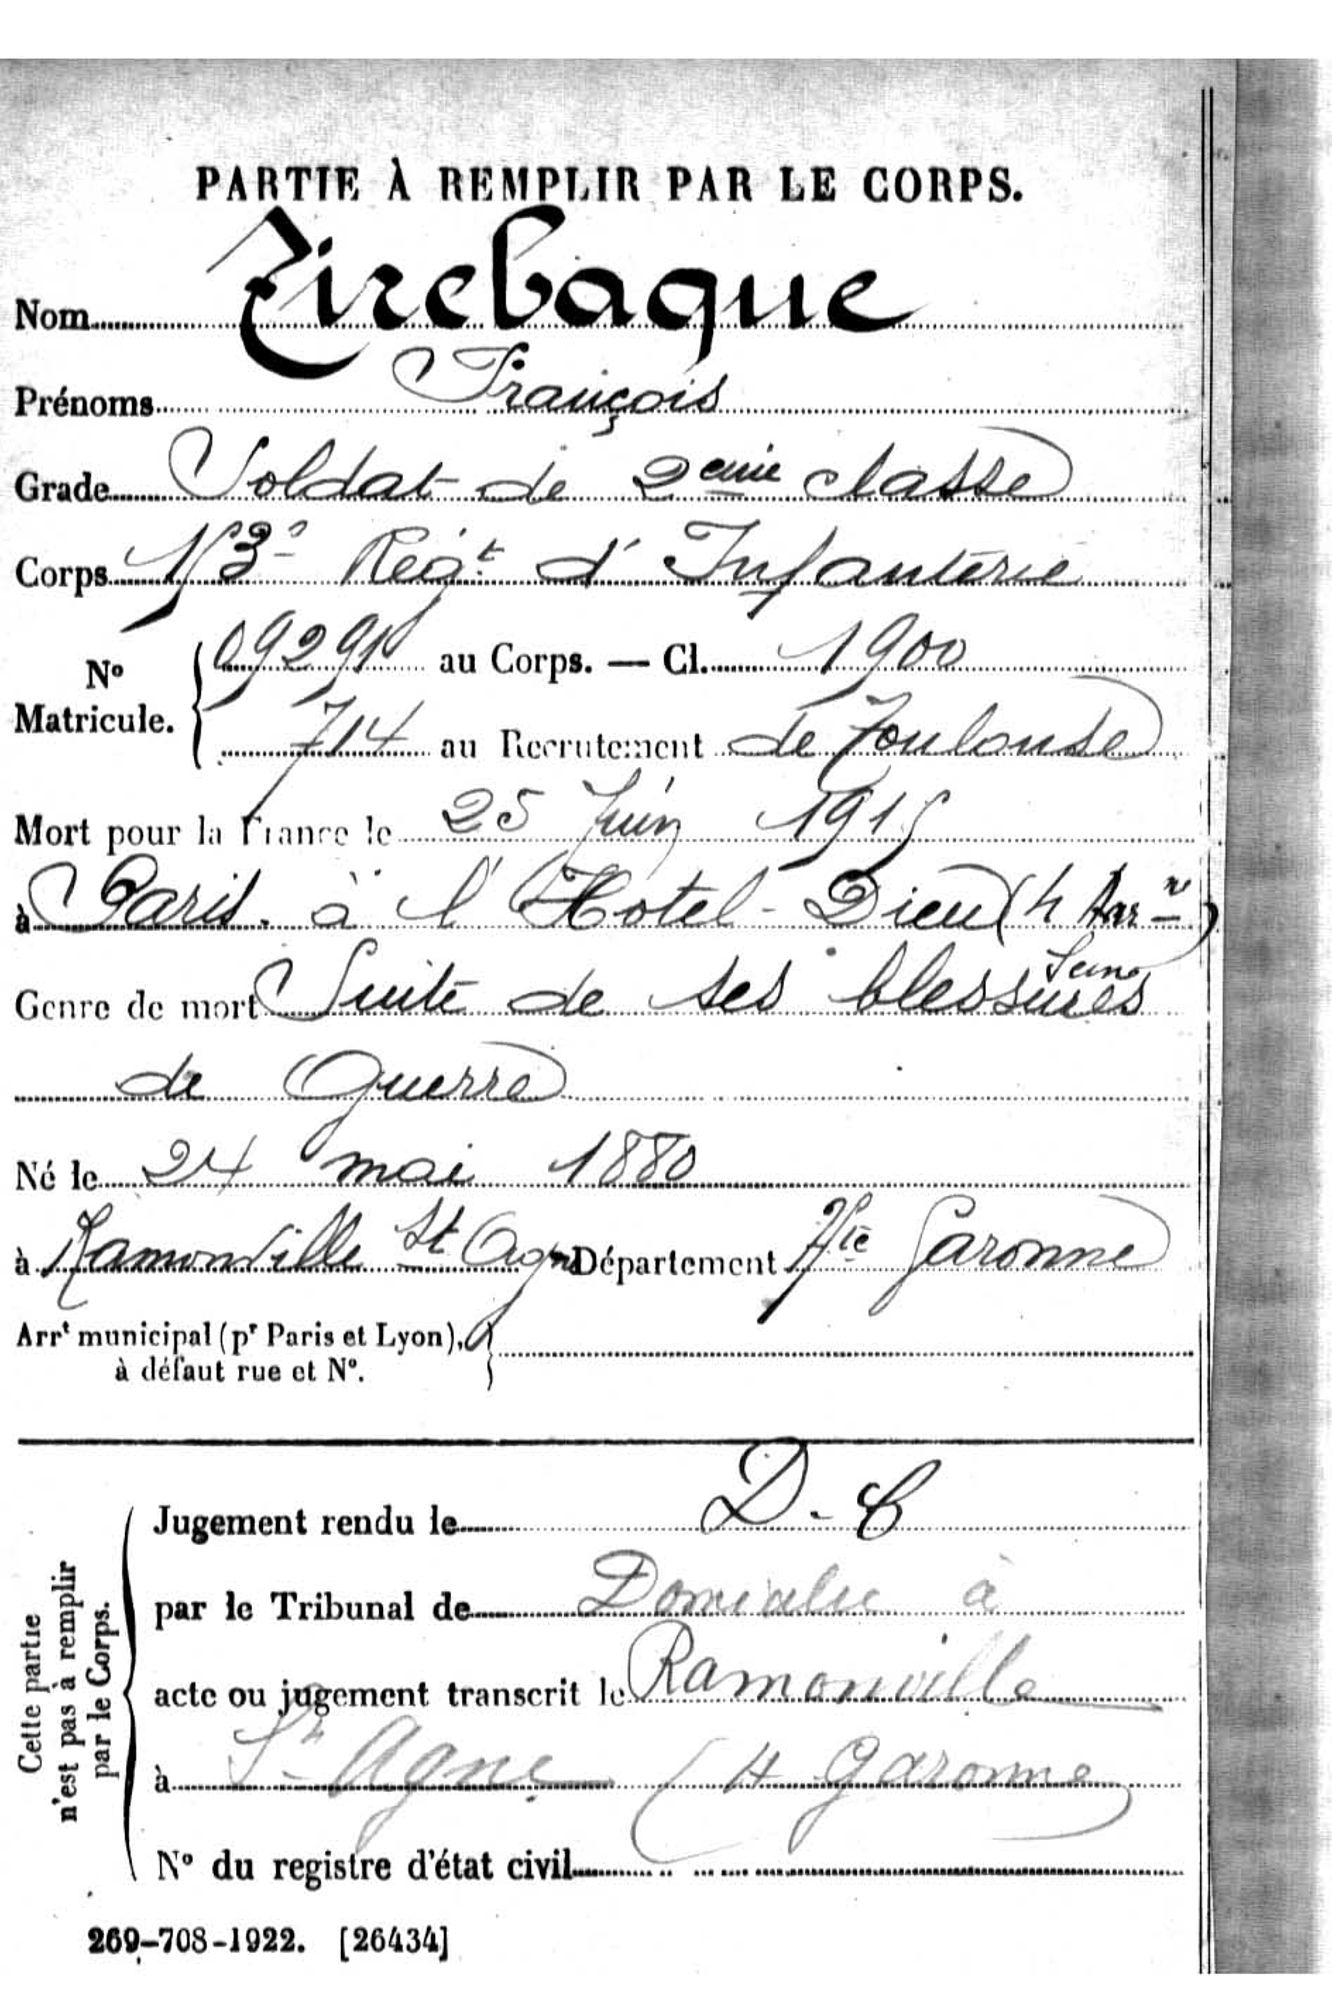 PARTIE À REMPLIR PAR LE CORPS.
Nom Tirebaque
Prénoms François
Grade Soldat de 2eme classe
Corps 113e Régt d'Infanterie
No Matricule. 09291 au Corps. — Cl. 1900
714 au Recrutement de Toulouse
Mort pour la France le 25 Juin 1915
à Paris. à l'Hotel-Dieu (4 Arr
Seine
Genre de mort Suite de ses blessures
de Guerre
Né le 24 mai 1880
à Ramonville St Agne Département Hte Garonne
Arrt municipal (pr Paris et Lyon),
à défaut rue et No.
Cette partie
n'est pas à remplir
par le Corps.
Jugement rendu le D. C
par le Tribunal de Domicilié à
acte ou jugement transcrit le Ramonville
à St Agne (H Garonne)
No du registre d'état civil
269-708-1922. [26434]